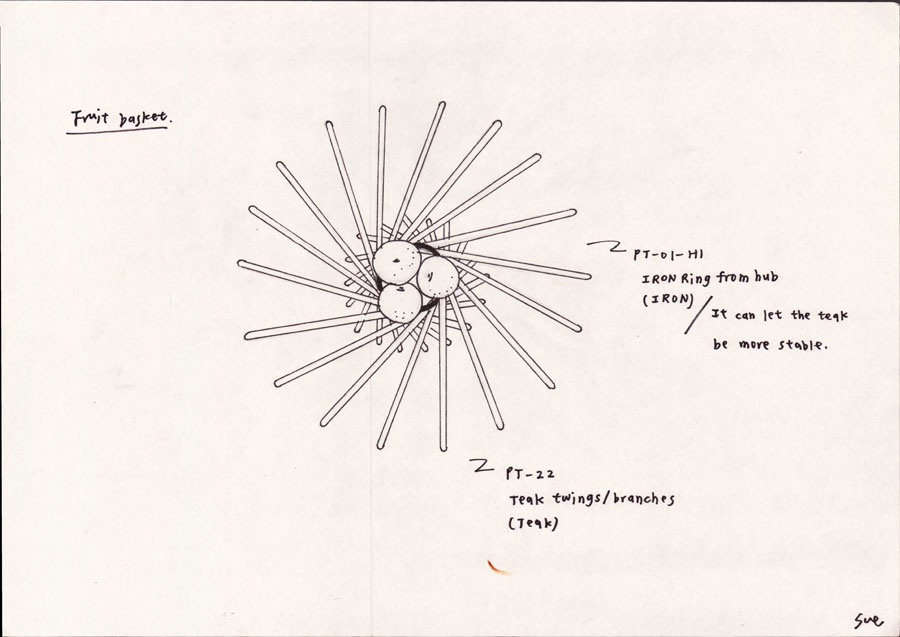 Fruit basket.
PT-01-H1
IRON Ring from hub
(IRON)
/ It can let the teak
be more stable.
PT-22
Teak twings/branches
(Teak)
Sue